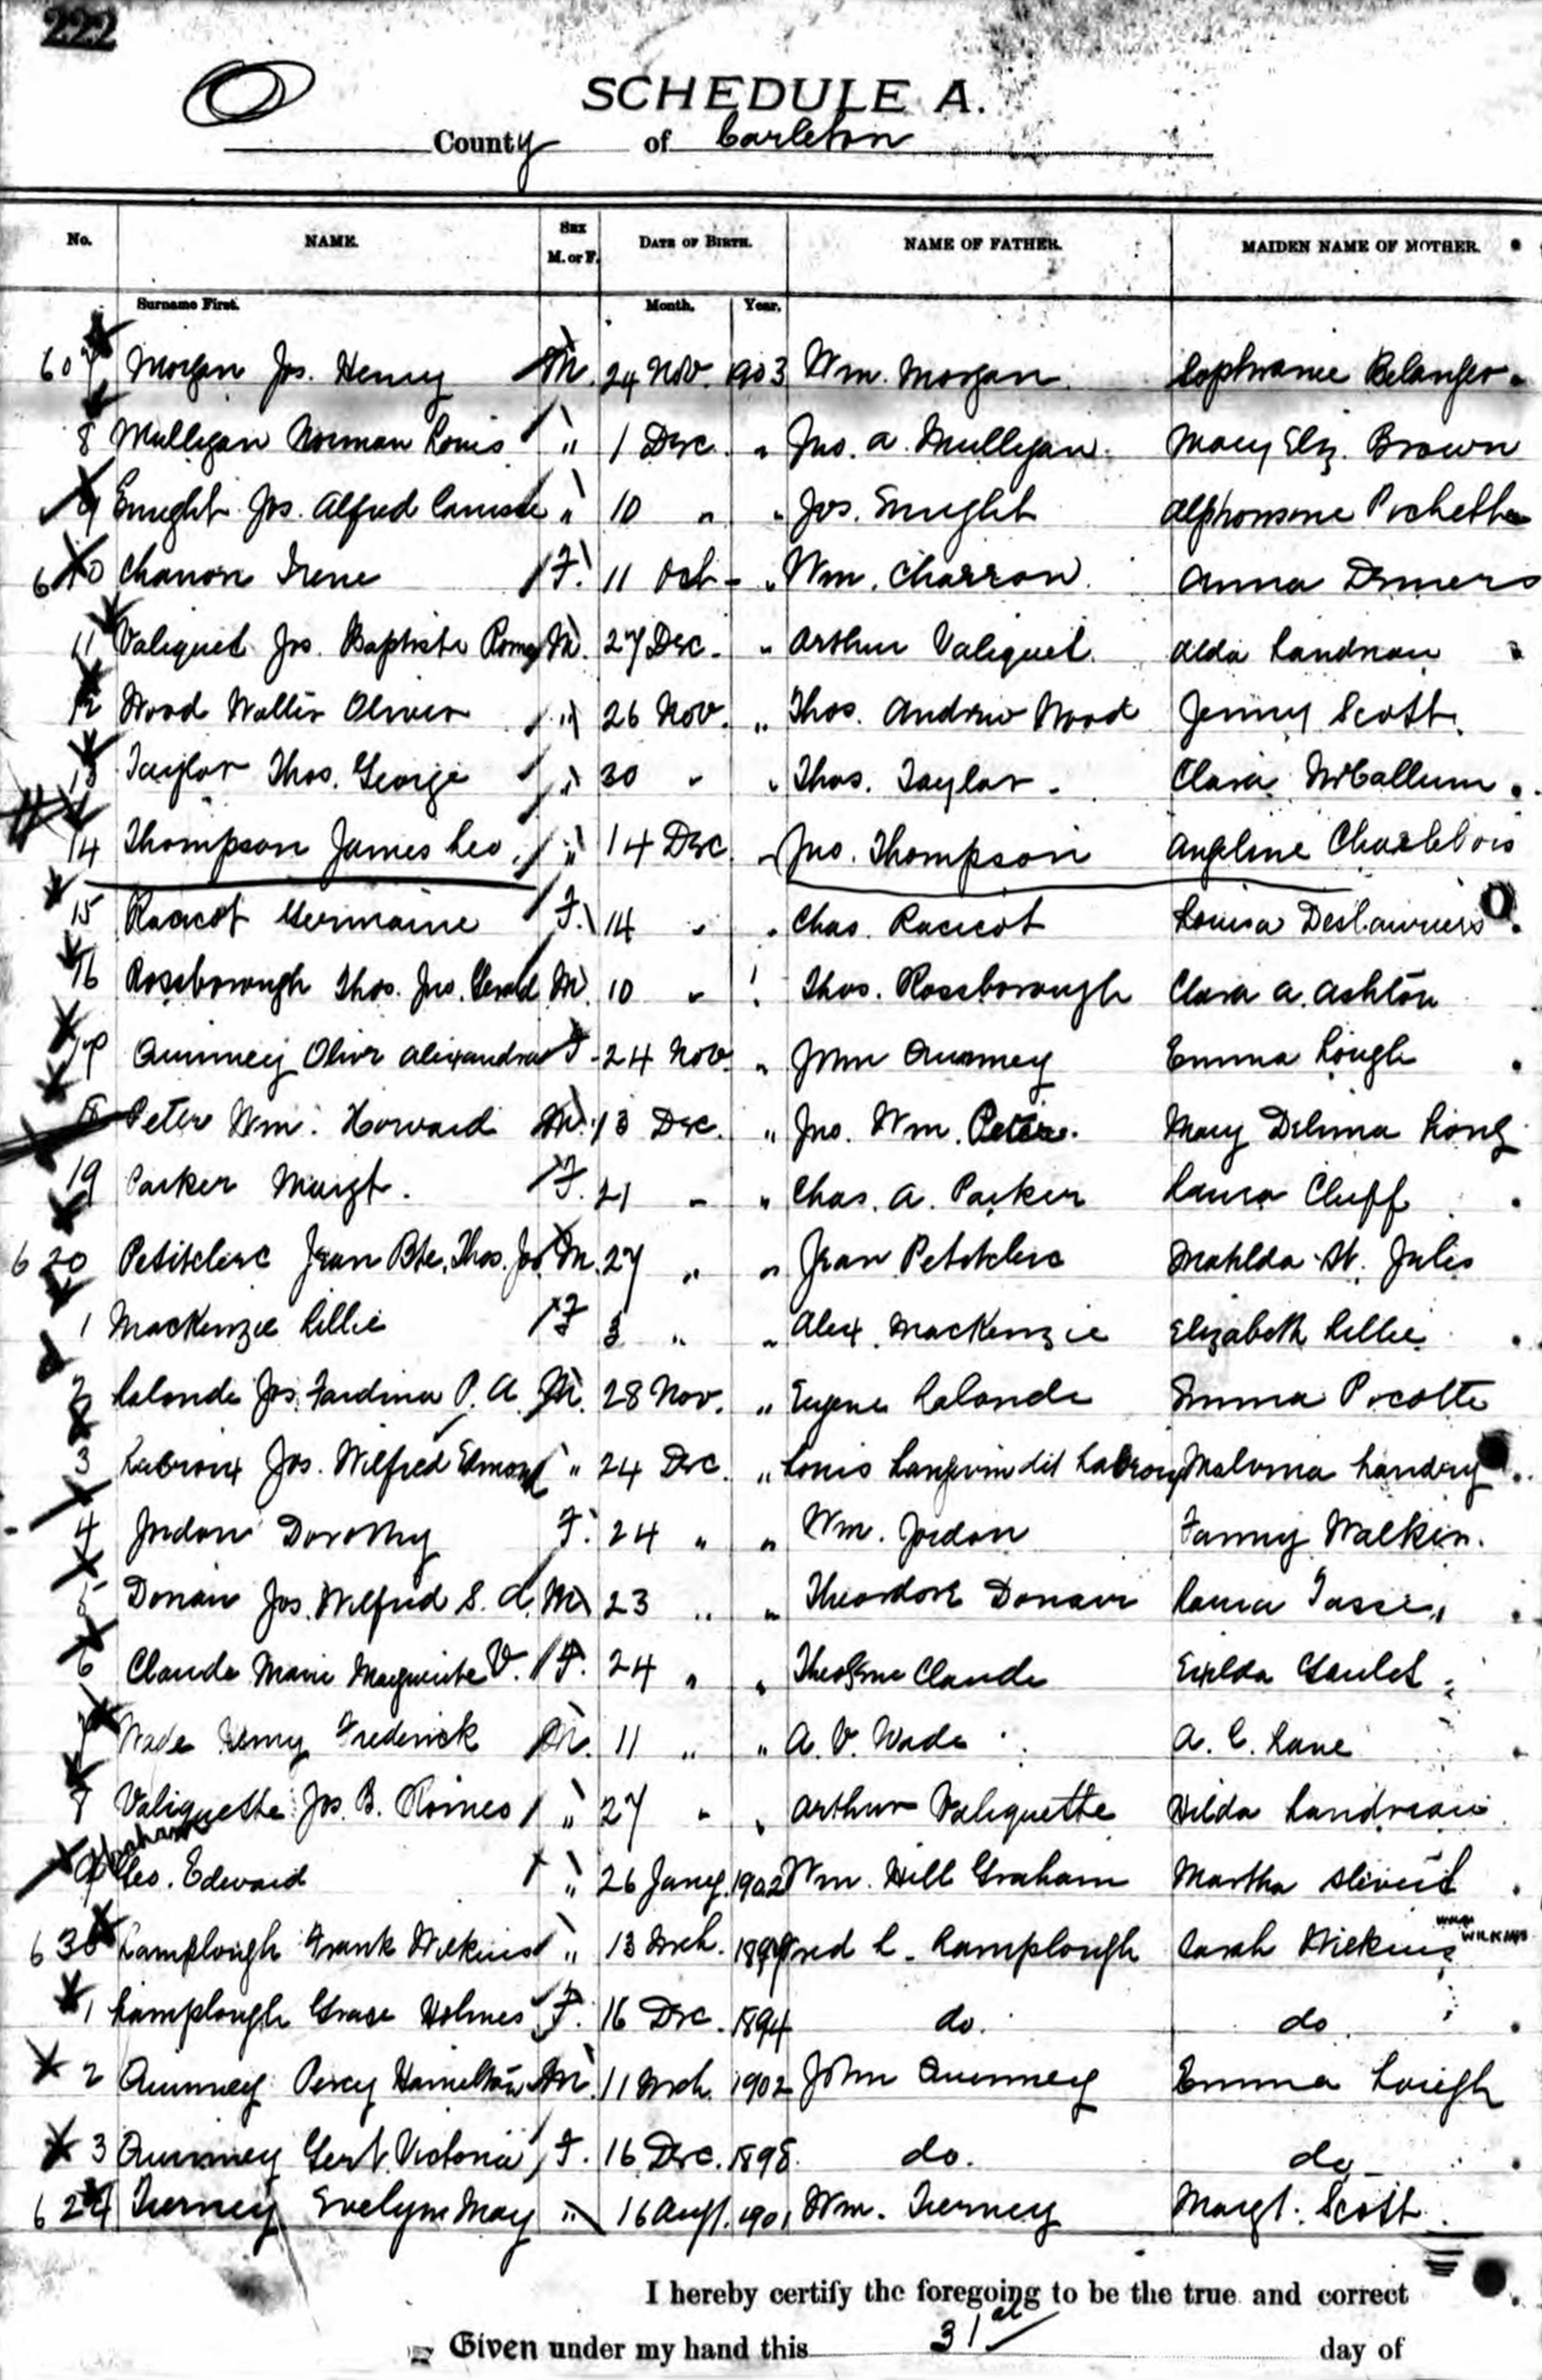 222
SCHEDULE A.
County of Carleton
No. NAME. Sex M. or F. DATE OF BIRTH. NAME OF FATHER. MAIDEN NAME OF MOTHER.
Surname First. Month. Year.
607 Morgan Jos. Henry M. 24 Nov. 1903 Wm. Morgan Sophronie Belanger
8 Mulligan Norman Louis " 1 Dec. " Jno. A. Mulligan. Mary Eliz. Brown
9 Enright Jos. Alfred " 10 " " Jos. Enright Alphonsine
610 Charron Irene F. 11 Oct - " Wm. Charron. Anna Demers
11 Valiquet Jos. Baptiste Romeo M. 27 Dec. " Arthur Valiquet. Alda Landriau
12 Wood Walter Oliver " 26 Nov. " Thos. Andrew Wood Jenny Scott.
13 Taylor Thos. George " 30 " " Thos. Taylor. Clara McCallum.
14 Thompson James Leo. " 14 Dec " Jno. Thompson Angeline Charlebois
15 Racicot Germaine F. 14 " " Chas. Racicot Louisa Deslauriers
16 Rossborough Thos. Jno. Gerald M. 10 " " Thos. Rossborough Clara A. Ashton
17 Quinney Olive Alexandra F. 24 Nov. " John Quinney Emma Lough
18 Peter Wm. Howard M. 13 Dec. " Jno. Wm. Peter. Mary Delima Long
19 Parker Margt. F. 21 " " Chas. A. Parker Laura Cluff
620 Petitclerc Jean Bte. Thos. Jos. M. 27 " " Jean Petitclerc Matilda St. Jules
1 MacKenzie Lillie F 3 " " Alex. MacKenzie Elizabeth Lillie
2 Lalonde Jos. P. A. M. 28 Nov. " Eugene Lalonde Emma Picotte
3 Labroux Jos. Wilfred Edmond " 24 Dec. " Louis Langevin dit Malvina Landry
4 Jordon Dorothy F. 24 " " Wm. Jordon Fanny Walkin.
5 Donair Jos. Wilfrid S. A. M 23 " " Theodore Donair Laura Tasse
6 Claude Marie Marguerite V. F. 24 " " Claude Exilda Goulet
7 Wade Henry Frederick M. 11 " " A. V. Wade A. C. Lane
8 Valiquette Jos. B. Romeo " 27 " " Arthur Valiquette Hilda Landriau
Graham
9 Geo. Edward " 26 Jany. 1902 Wm. Hill Graham Martha
630 Lamplough Frank Wilkins " 13 Mch. Fred L. Lamplough Sarah Wilkins WILKINS
1 Lamplough Grace Holmes F. 16 Dec. 1894 do. do.
2 Quinney Percy Hamilton M. 11 Mch. 1902 John Quinney Emma Lough
3 Quinney Gert. Victoria F. 16 Dec. 1898. do. do
624 Tierney Evelyn May " 16 Augt. 1901 Wm. Tierney Margt. Scott.
I hereby certify the foregoing to be the true and correct
Given under my hand this 31st day of